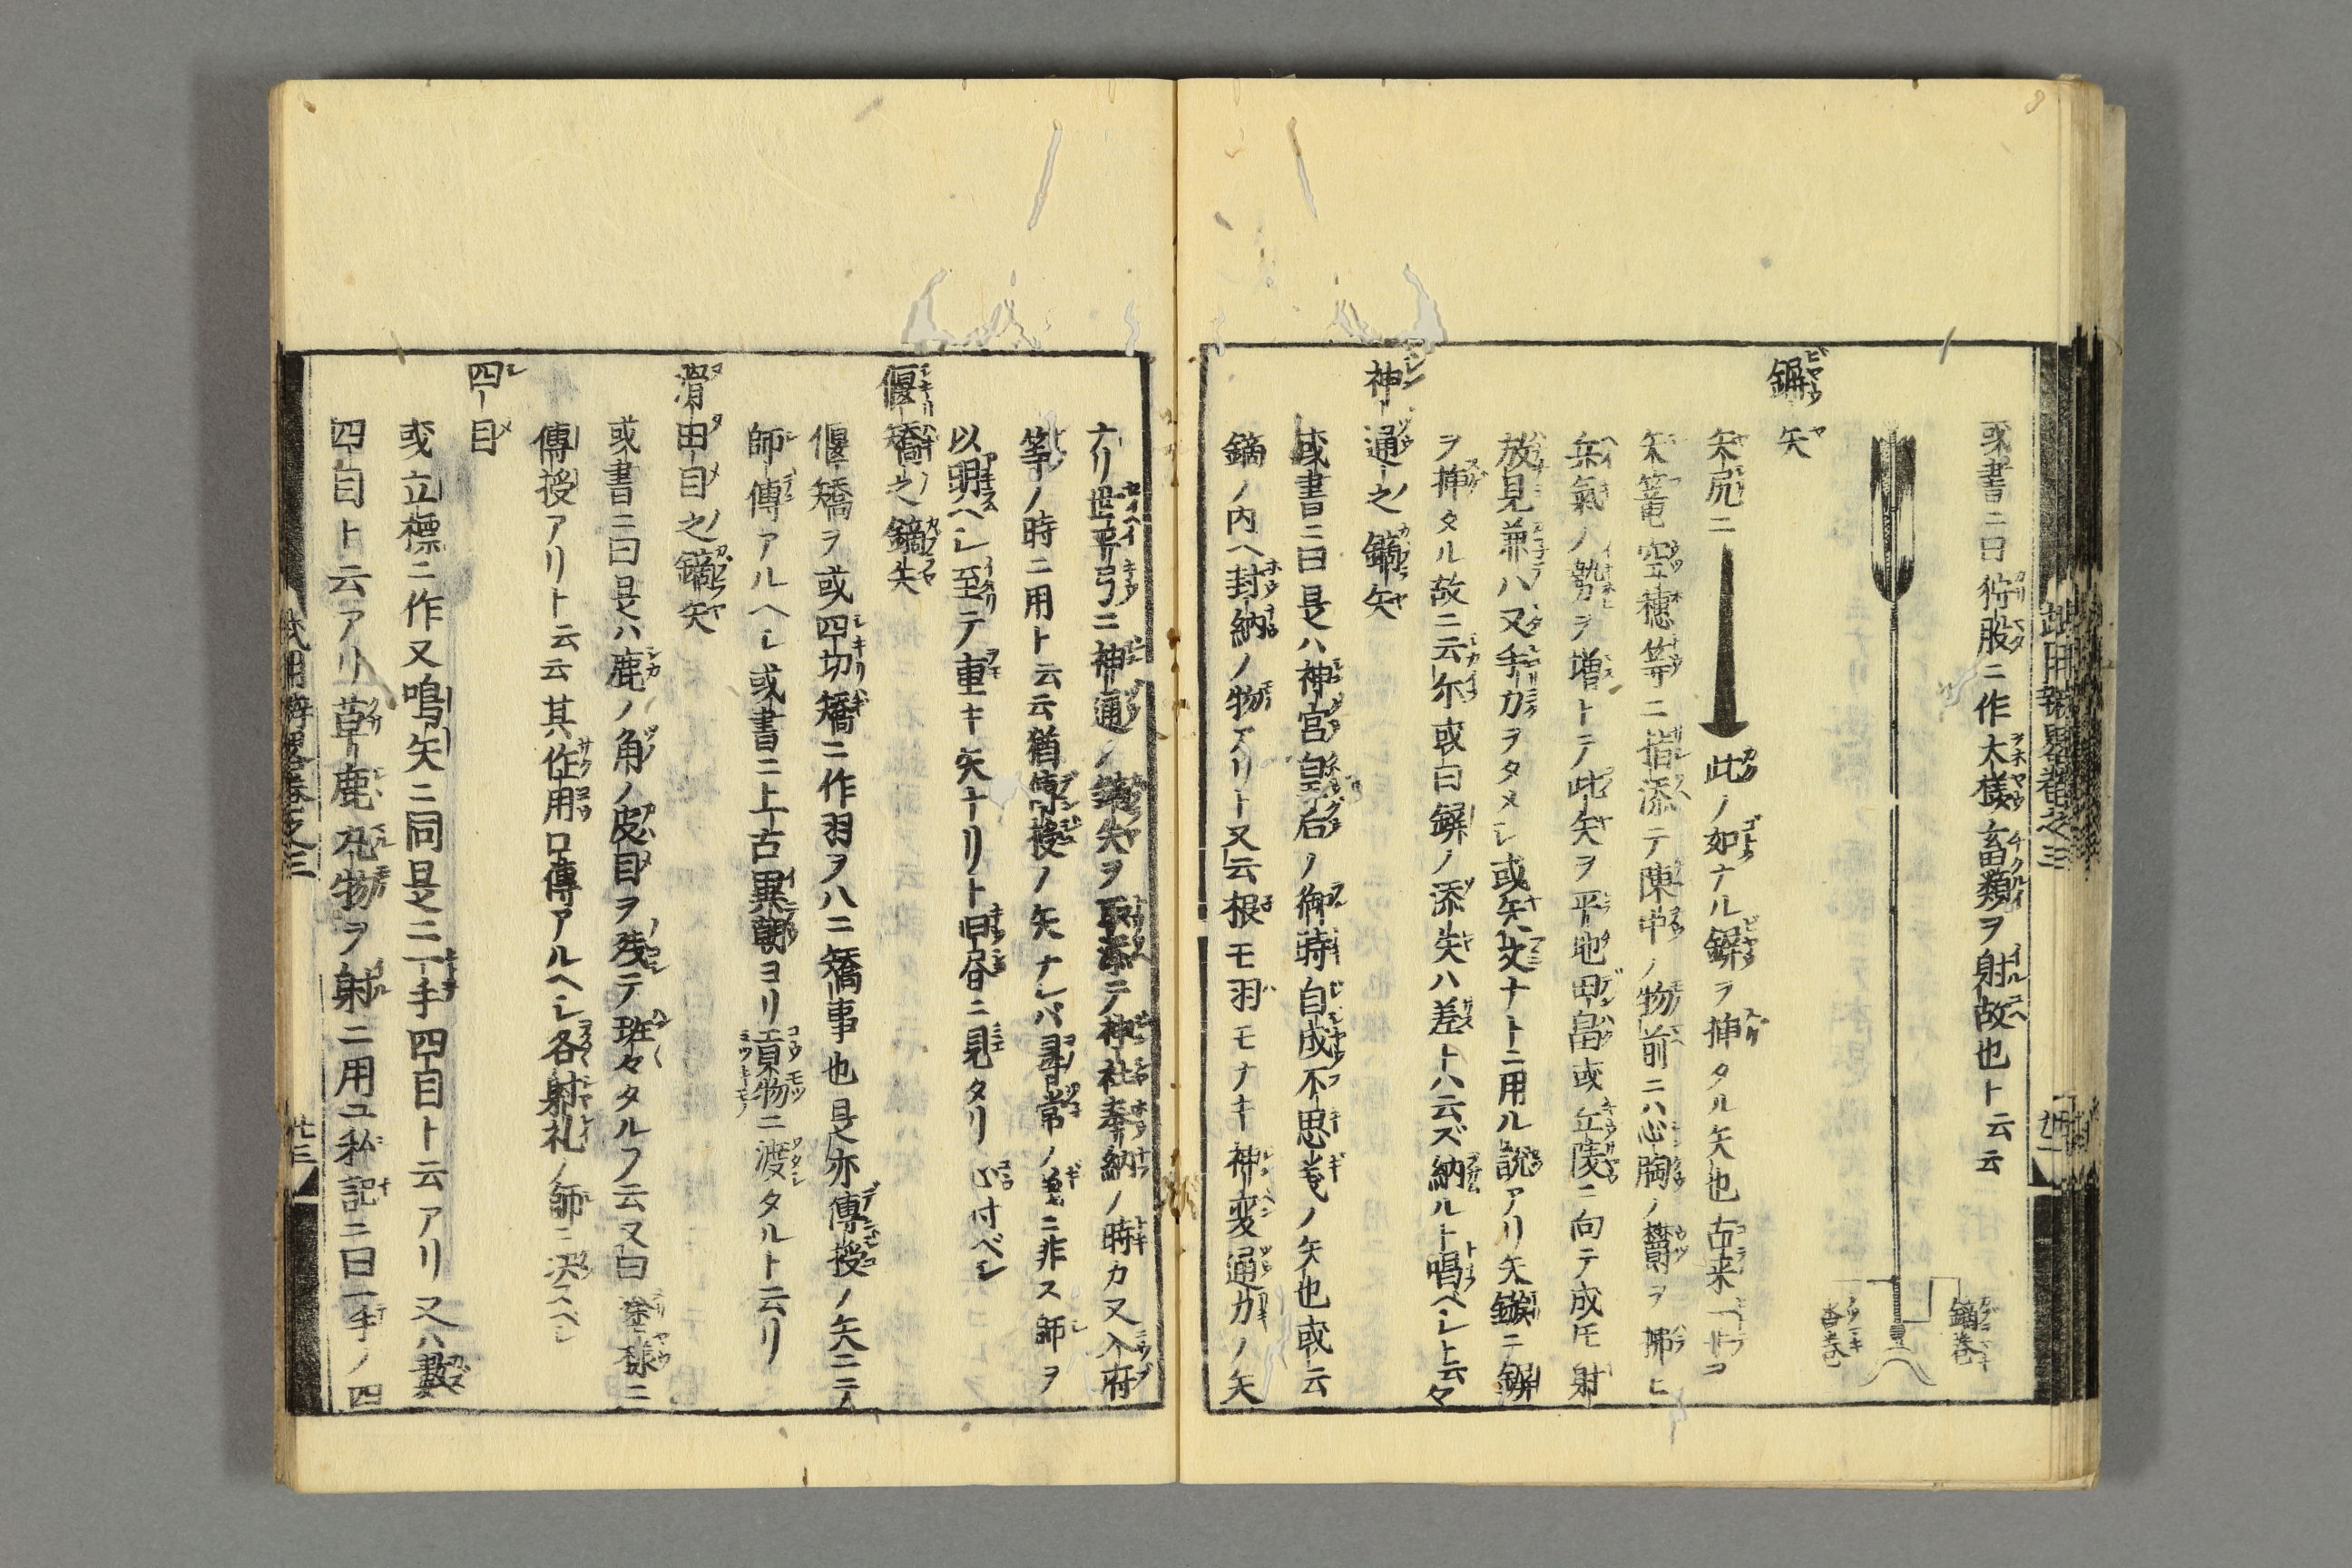 或書ニ曰狩股ニ作大様畜類ヲ射故也ト云云
鏑巻
沓巻
鐴矢
矢尻ニ此ノ如ナル鐴ヲ挿タル矢也古来一サヲ
矢篭空穂等ニ指添テ陳中ノ物前ニハ心胸ノ欝ヲ拂ヒ
兵氣ノ勢ヲ増トテ此矢ヲ平地田畠或丘陵ニ向テ成モ射
放見兼ハ又手カヲタメシ或矢文ナトニ用ル説アリ矢鏃ニ鐴
ヲ挿タル故ニ云尓或曰鐴ノ添矢ハ差トハ云ズ納ルト唱ヘシト云々
神通之鏑矢
或書ニ曰是ハ神宮皇后ノ御時自成不思義ノ矢也或云
鏑ノ内ヘ封納ノ物アリト又云根モ羽モナキ神変通力ノ矢
ナリ世平弓ニ神通ノ鏑矢ヲ取添テ神社奉納ノ時カ又入府
等ノ時ニ用ト云云猶傳授ノ矢ナレバ尋常ノ義ニ非ス師ヲ
以明ヘシ至テ重キ矢ナリト旧昏ニ見タリ心付ベシ
偃矯之鏑矢
偃矯ヲ或四切矯ニ作羽ヲ八ニ矯事也是亦傳授ノ矢ニテ
師傳アルヘシ或書ニ上古異朝ヨリ貢物ニ渡タルト云リ
滑田目之鏑矢
或書ニ曰是ハ鹿ノ角ノ皮目ヲ残テ班々タルヲ云又曰塗様ニ
傳授アリト云云其作用口傳アルヘシ各射礼ノ師ニ决スベシ
四目
或立標ニ作又鳴矢ニ同是ニ一手四目ト云アリ又ハ数
四目ト云アリ草鹿丸物ヲ射ニ用ユ私記ニ曰一手ノ四
武用辨畧巻之三
廿三